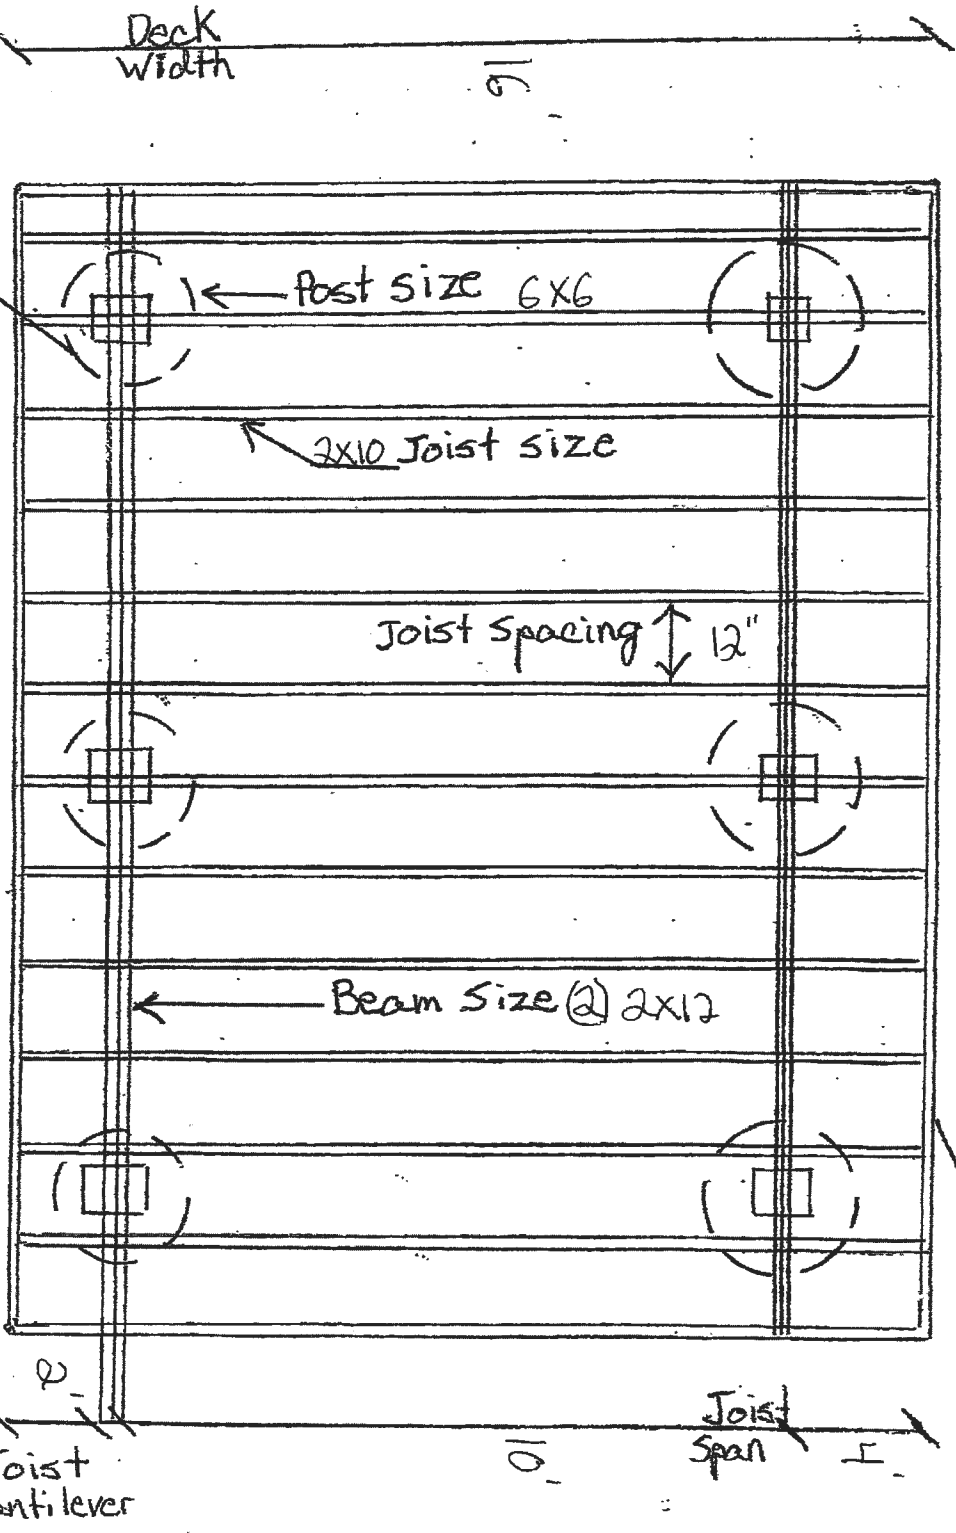 Deck
Width
16'
Post size 6X6
2X10 Joist size
Joist Spacing 12"
Beam Size (2) 2X12
2'
Joist
Span
10'
4'
Joist
antilever